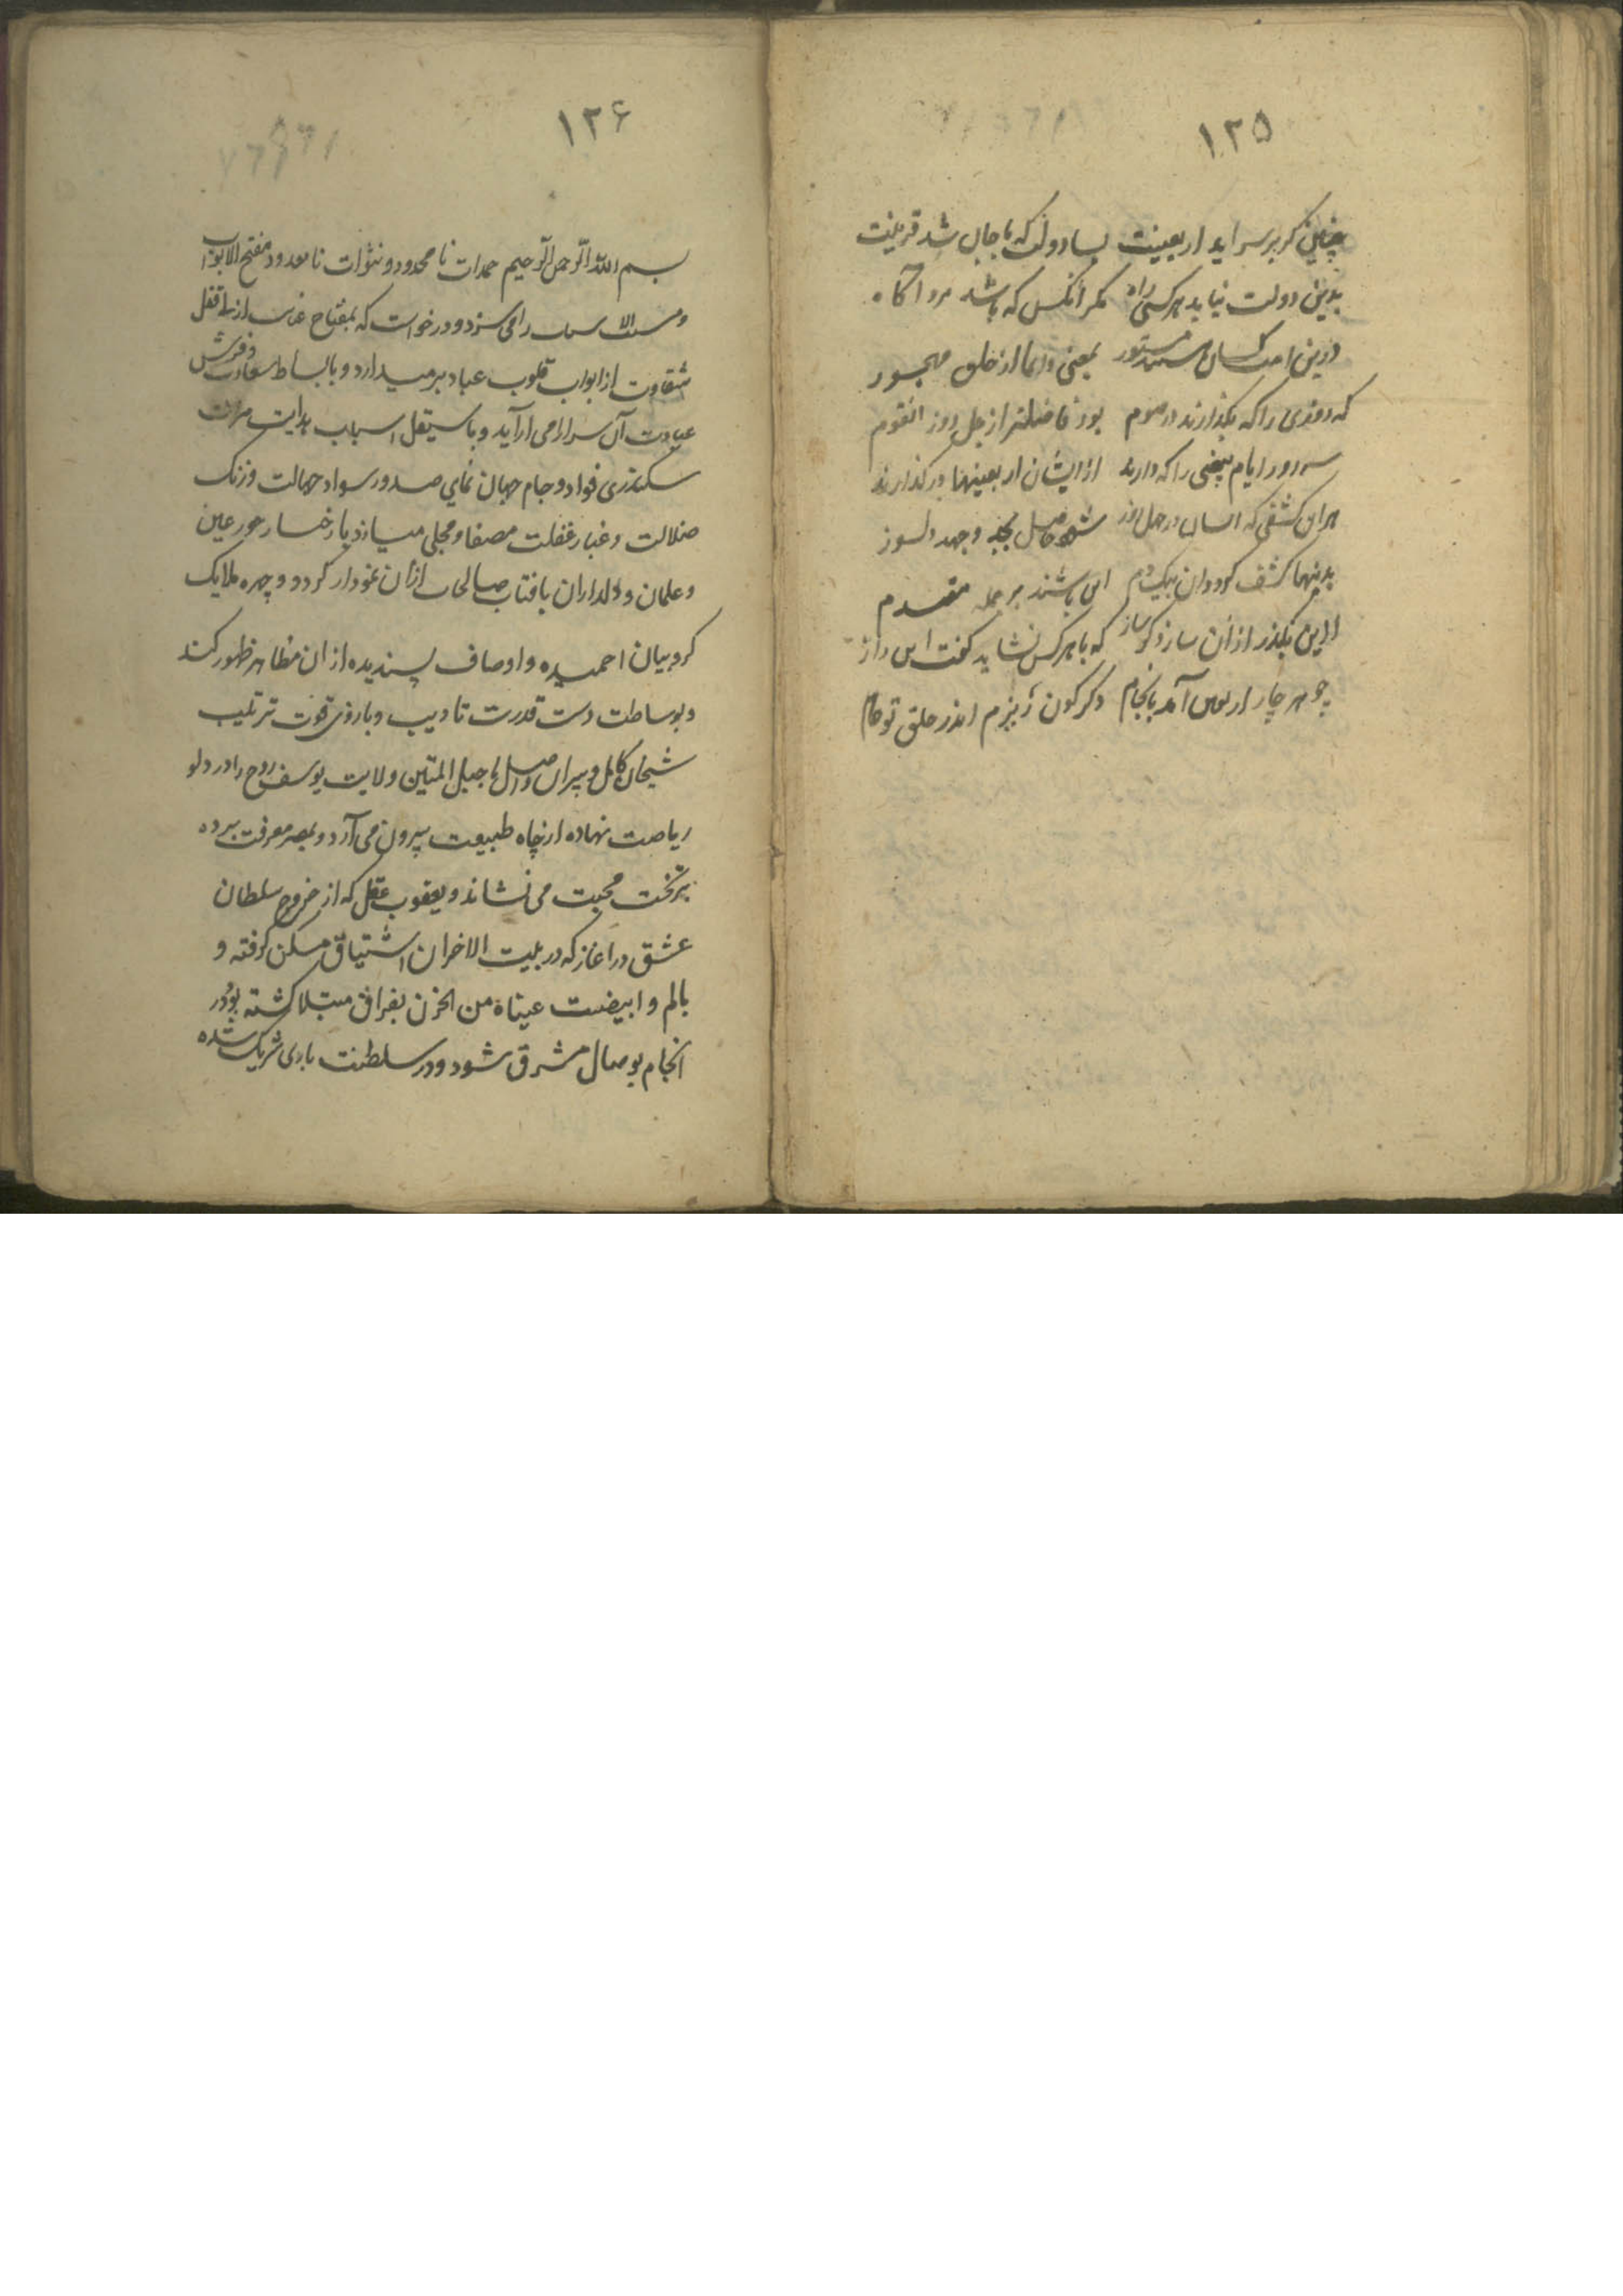 ۱۲۵
چنین گر بر سر اید اربعینت بسا دولت که با جان شد قرینت
بدین دولت نیابد هر کسی راه مگر انکس که باشد مرد اگاه
درین امت کسان هستند مستور بمعنی دایما از خلق مهجور
که روزی را که بگذارند در صوم بود فاضلتر از چل روز انقوم
سه روز ایام بیضی را که دارند از ایشان اربعینها در گذارند
هر ان کشفی که انسان در چهل روز شود حاصل بجد و جهد دلسوز
بدینها کشف گردد ان بیک دم این باشند بر جمله مقدم
ازین بگذر از ان ساز دگر ساز که با هر کس نشاید گفت این راز
چو هر چار اربعین آمد بانجام دگرگون ریزم اندر حلق تو جام
۱۲۶
بسم الله الرحمن الرحیم حمدات نا محدود و نثرات نا معدود مفتح الابواب
و مسبب الاسباب را می سزد و در خواست که بمفتاح ازلی قفل
شقاوت از ابواب قلوب عباد بر میدارد و با بساط سعادت و فرش
عبادت آن سرا را می آراید و با سیقل اسباب هدایت مرات
سکندری فواد و جام جهان نمای صدور سواد جهالت و زنک
ضلالت و غبار غفلت مصفا و مجلی میسازد یا رخسار حور عین
و غلمان و دلداران یا فتاب صالحات ازان نمودار گردد و چهره ملایک
کروبیان احمیده و اوصاف پسندیده از ان مظاهر ظهور کند
و بوساطت دست قدرت تادیب و بازوی قوت ترتیب
شیخان کامل و پیران واصل با حبل المتین ولایت یوسف روح را در دلو
ریاضت نهاده از چاه طبیعت بیرون می آرد و بمصر معرفت برده
بر تخت محبت می نشاند و یعقوب عقل که از خروج سلطان
عشق در اغاز که در بیت الاخران اشتیاق مسکن گرفته و
بالم و ابیضت عیناه من الحزن بفراق مبتلا گشته بود در
انجام بوصال مشرق شود و در سلطنت با وی شریک شده